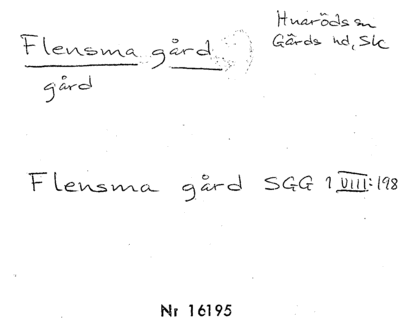 Flensma gård
gård
Hnaröds sn
Gärds hd, Sk
Flensma gård SGG 1 VIII:198
Nr 16195